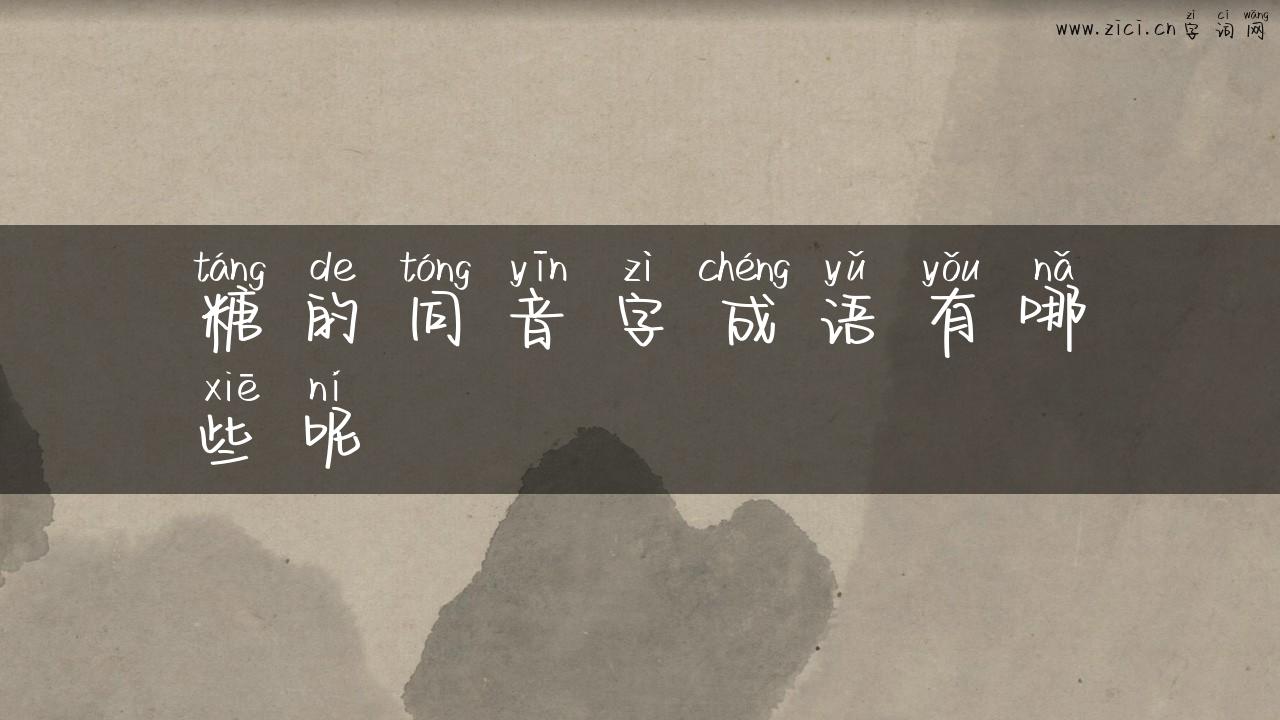 zì cí wǎng
www.zici.cn 字词网
táng de tóng yīn zì chéng yǔ yǒu nǎ
糖的同音字成语有哪
xiē ní
些呢